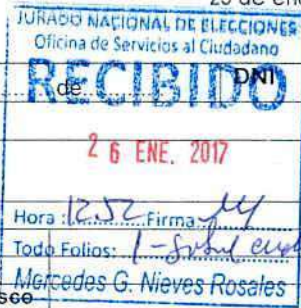 de ene
JURADO NACIONAL DE ELECCIONES
Oficina de Servicios al Ciudadano
RECIBIDO
de DNI
26 ENE. 2017
Hora: 12.52 Firma
Todo Folios: 1-
Mercedes G. Nieves Rosales
sco